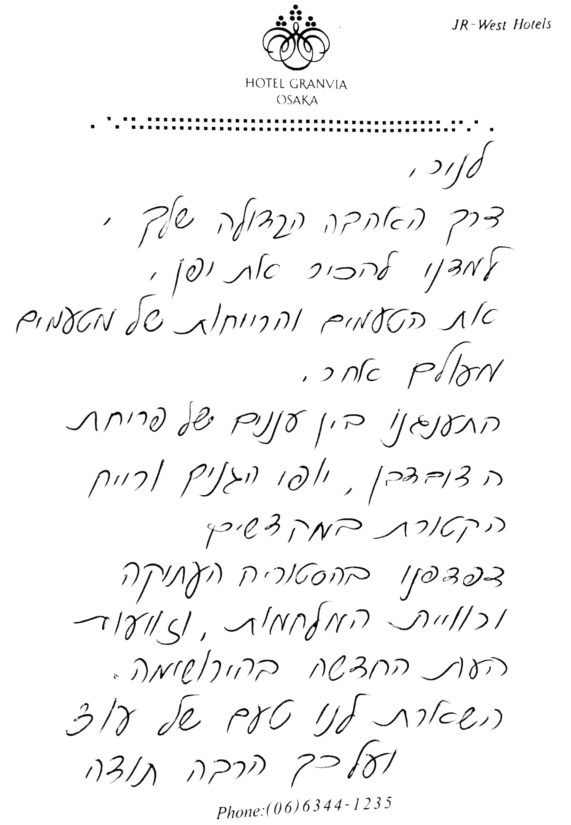 JR-West Hotels
HOTEL GRANVIA
OSAKA
לניר,
דרך האהבה הגדולה שלך,
למדנו להכיר את יפן,
את הטעמים והריחות של מטעמים
מעולם אחר.
התענגנו בין עננים של פריחת
הדובדבן, יופי הגנים וריח
הקטורת במקדשים
דפדפנו בהסטוריה העתיקה
ורווית המלחמות, וזוועות
העת החדשה בהירושימה.
השארת לנו טעם של עוד
ועל כך הרבה תודה
Phone:(06)6344-1235